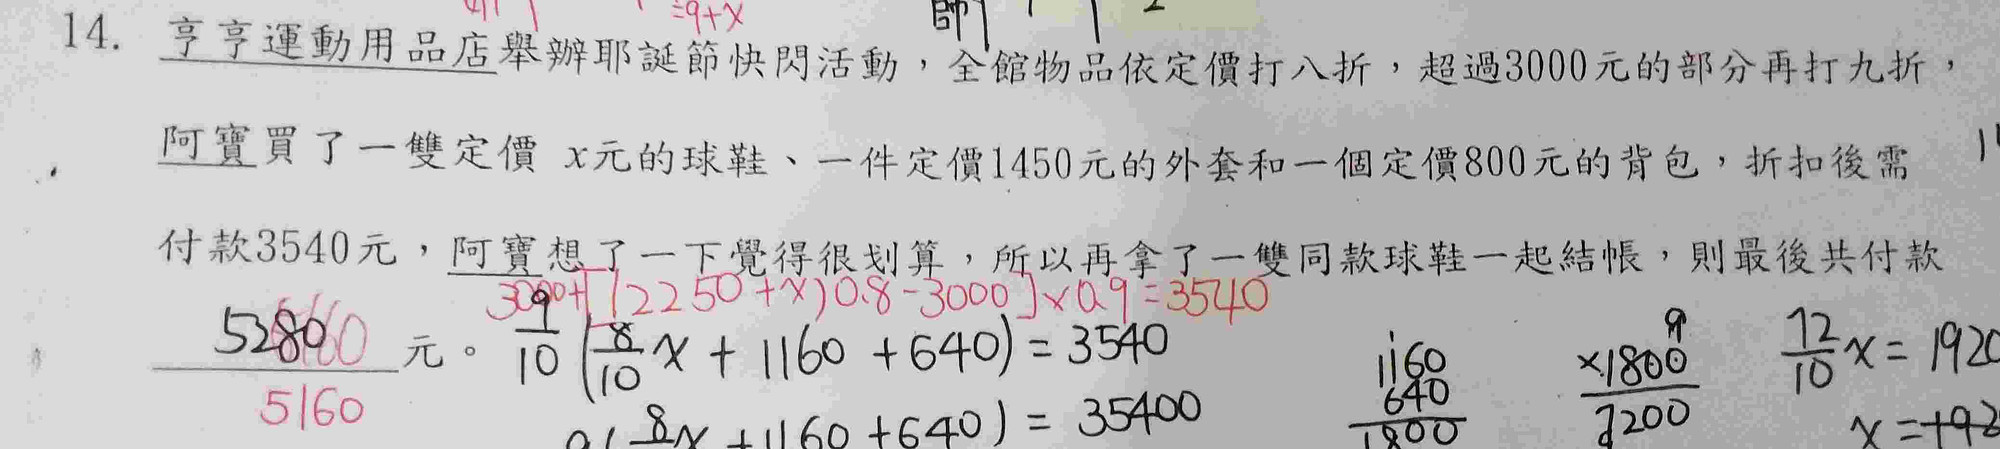 =9+x
14. 亨亨運動用品店舉辦耶誕節快閃活動，全館物品依定價打八折，超過3000元的部分再打九折，
阿寶買了一雙定價 x元的球鞋、一件定價1450元的外套和一個定價800元的背包，折扣後需
付款3540元，阿寶想了一下覺得很划算，所以再拿了一雙同款球鞋一起結帳，則最後共付款
3000+[(2250+x)0.8-3000]×0.9=3540
5280 元。 9/10 (8/10 x + 1160 + 640) = 3540
5160
1160
640
1800
9
×1800
7200
12/10 x = 1920
(8x + 1160 + 640) = 35400